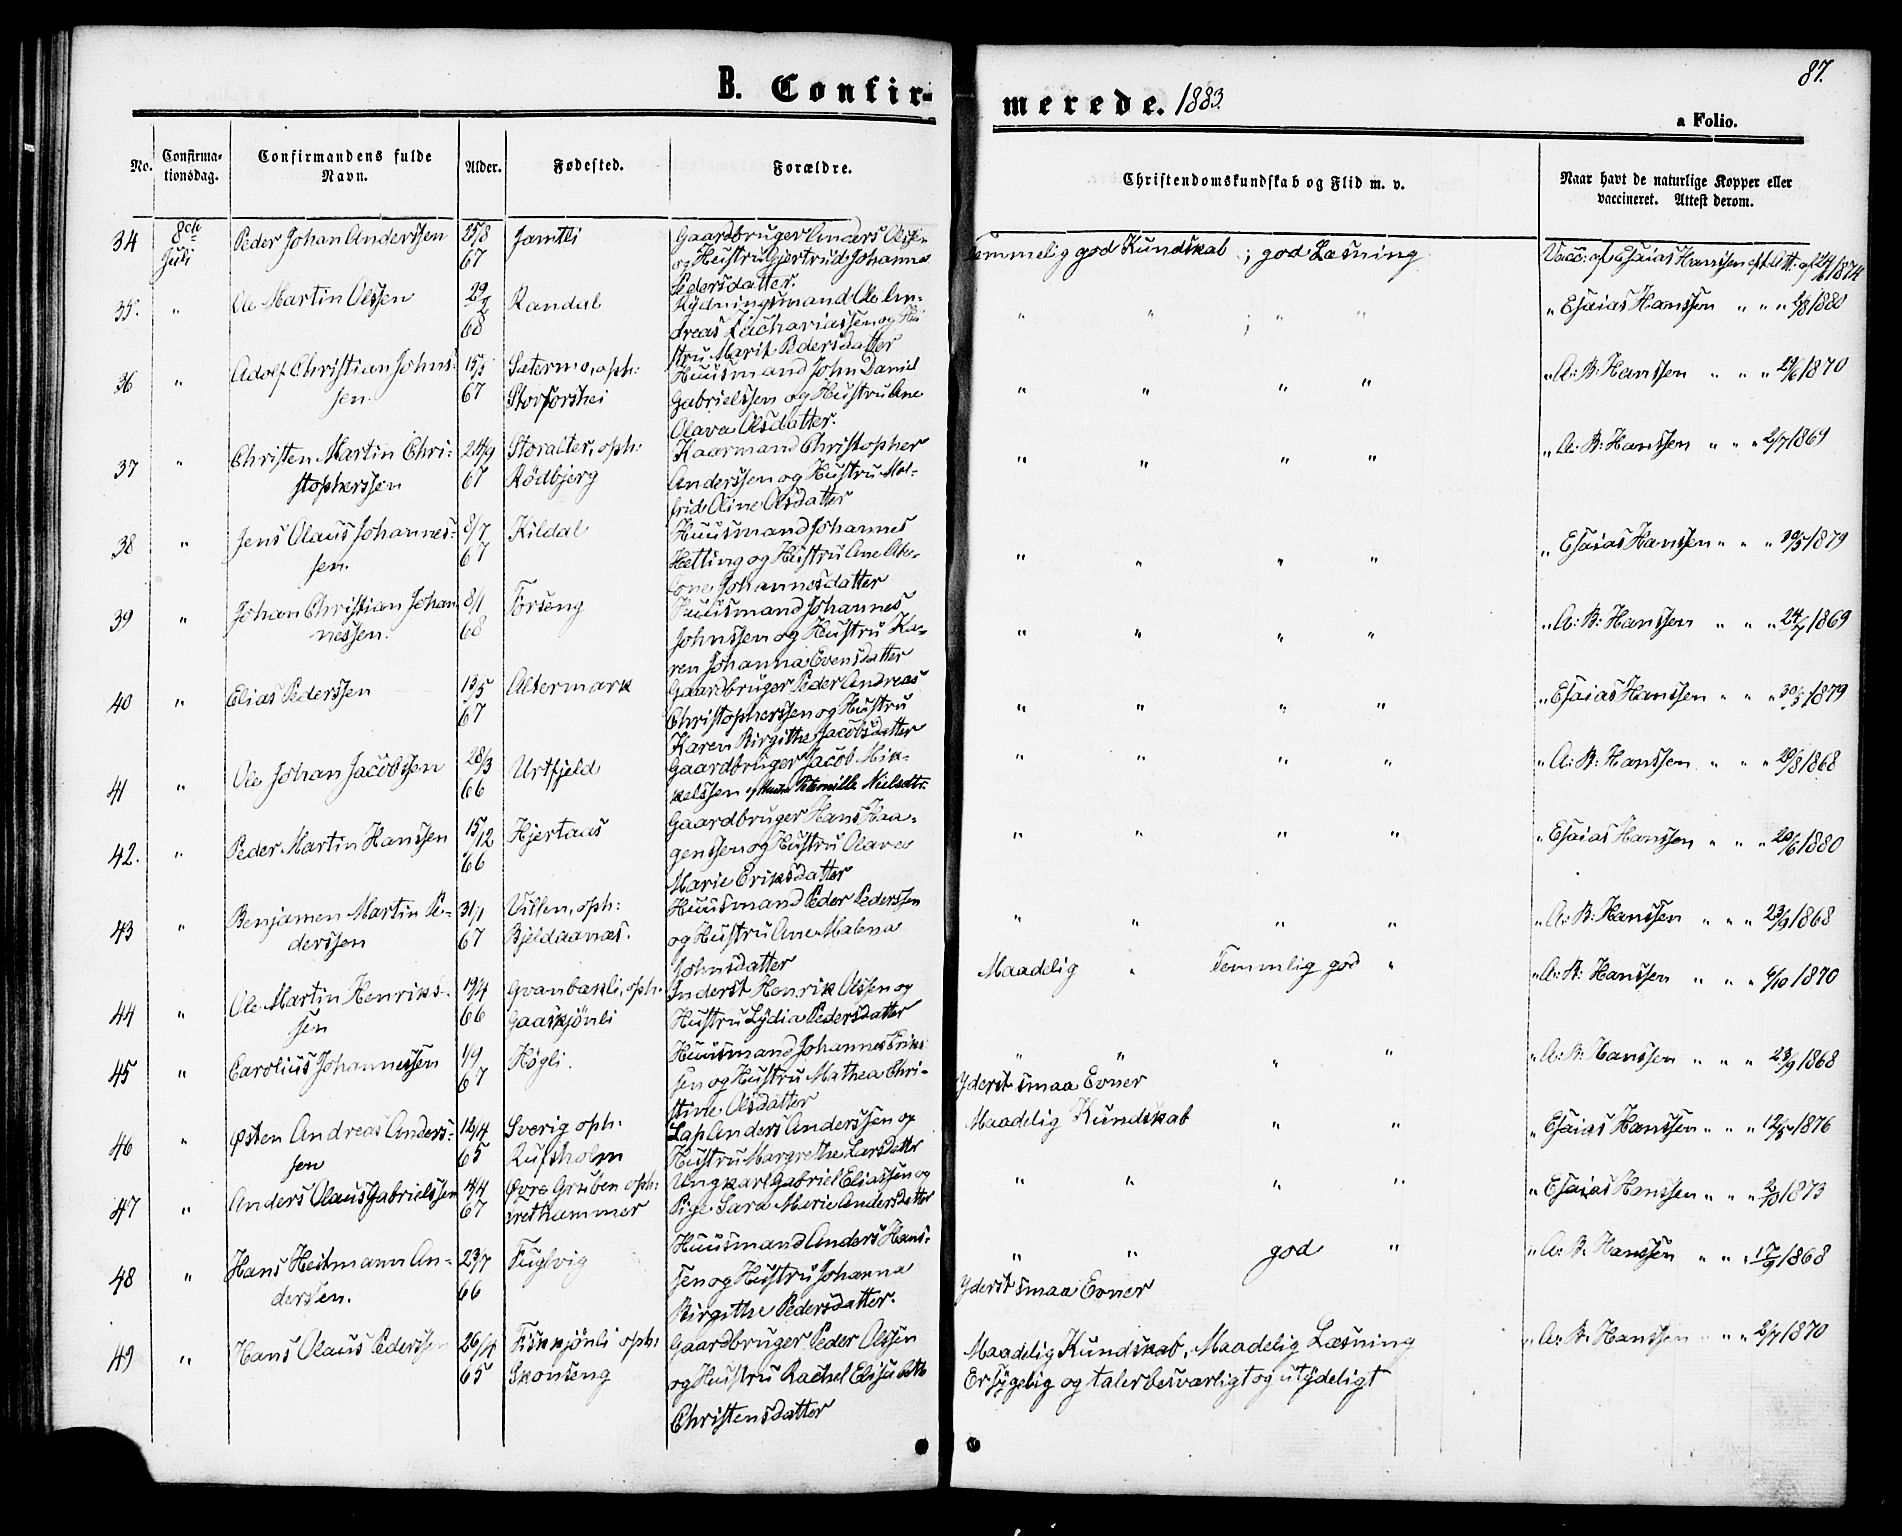 B. Confir-
merede. 1883.
87.
a Folio.
No.
Confirma-
tionsdag.
Confirmandens fulde
Navn.
Alder.
Fødested.
Forældre.
Christendomskundskab og Flid m. v.
Naar havt de naturlige Kopper eller
vaccineret. Attest derom.
34 8de Juli Peder Johan Anderssen 25/8 67 Jamtli
Gaardbruger Anders Olse-
og Hustru Gjertrud Johanna
Pedersdatter.
Temmelig god Kundskab ; god Læsning
Vacc: af Esaias Hanssen eft. Att. af 24/6 1874
35. " Ole Martin Olssen 29/2 68 Randal
Rydningsmand Ole An-
dreas Zachariassen og Hu
stru Marit Pedersdatter
" " ; " "
" Esaias Hanssen " " " 1880
36 " Adolf Christian Johns-
sen. 15/5 67 Sætermo, oph:
Storforshei
Huusmand John Daniel
Gabrielssen og Hustru Ane
Olava Olsdatter.
" " " "
" A: B: Hanssen " " " 1870
37 " Christen Martin Chri-
stopherssen 24/9 67 Storalter, oph:
Rödbjerg
Kaarmand Christopher
Anderssen og Hustru Mal-
frid Oline Olsdatter
" " " "
" A: B: Hanssen " " " 2/7 1869
38 " Jens Olaus Johannes-
sen. 8/7 67 Kildal
Huusmand Johannes
Hetting og Hustru Ane Abe-
lone Johannesdatter
" " " "
" Esaias Hanssen " " " 30/5 1879
39 " Johan Christian Johan
nessen. 8/1 68 Forseng
Huusmand Johannes
Johnssen og Hustru Ka-
ren Johanna Evensdatter
" " " "
" A: B: Hanssen " " " 24/7 1869
40 " Elias Pederssen 13/5 67 Altermark
Gaardbruger Peder Andreas
Christopherssen og Hustru
Karen Birgithe Jacobsdatter
" " " "
" Esaias Hanssen " " " 30/5 1879
41 " Ole Johan Jacobssen 28/3 66 Urtfjeld
Gaardbruger Jacob Mik-
kelssen og Hustru Peternille Nielsdtr.
" " " "
" A: B: Hanssen " " " 1868
42. " Peder Martin Hanssen 15/12 66 Hjertaas
Gaardbruger Hans Haa-
genssen og Hustru Olava
Marie Eriksdatter
" " " "
" Esaias Hanssen " " " 20/6 1880
43 " Benjamen Martin Pe-
derssen 31/1 67 Villen, oph:
Bjeldaanæs.
Huusmand Peder Pederssen
og Hustru Ane Malena
Johnsdatter
" " " "
" A: B: Hanssen " " " 23/9 1868
44 " Ole Martin Henriks-
sen 19/4 66 Gvanbækli, oph.
Gaaskjönli
Inderst Henrik Olssen og
Hustru Lydia Pedersdatter
Maadelig " Temmlig god "
" A: B: Hanssen " " " 6/10 1870
45 " Carolius Johannessen 1/9 67 Høgli.
Huusmand Johannes Eriks
sen og Hustru Mathea Chri-
stine Olsdatter
" " " "
Yderst smaa Evner
" A: B: Hanssen " " " 23/9 1868
46 " Østen Andreas Anders-
sen 16/4 65 Sverig oph.
Rufsholm
Lap Anders Anderssen og
Hustru Margrethe Larsdatter
Maadelig Kundskab " "
" Esaias Hanssen " " " 12/5 1876
47 " Anders Olaus Gabrielssen 4/4 67 Övre Gruben oph:
Brethammer
Ungkarl Gabriel Eliassen og
Pige Sara Marie Andersdatter
" " " "
" Esaias Hanssen " " " 1873
48 " Hans Heitmann An-
derssen. 23/7 66 Fuglvig
Huusmand Anders Hans-
sen og Hustru Johanna
Birgithe Pedersdatter.
" " god "
Yderst smaa Evner
" A: B: Hanssen " " " 17/9 1868
49 " Hans Olaus Pederssen 26/4 65 Fiskkjönli oph:
Skonseng
Gaardbruger Peder Olssen
og Hustru Rachel Elisabeth
Christensdatter
Maadelig Kundskab, Maadelig Læsning
Er sygelig og taler besværligt og utydeligt
" A: B: Hanssen " " " 2/7 1870